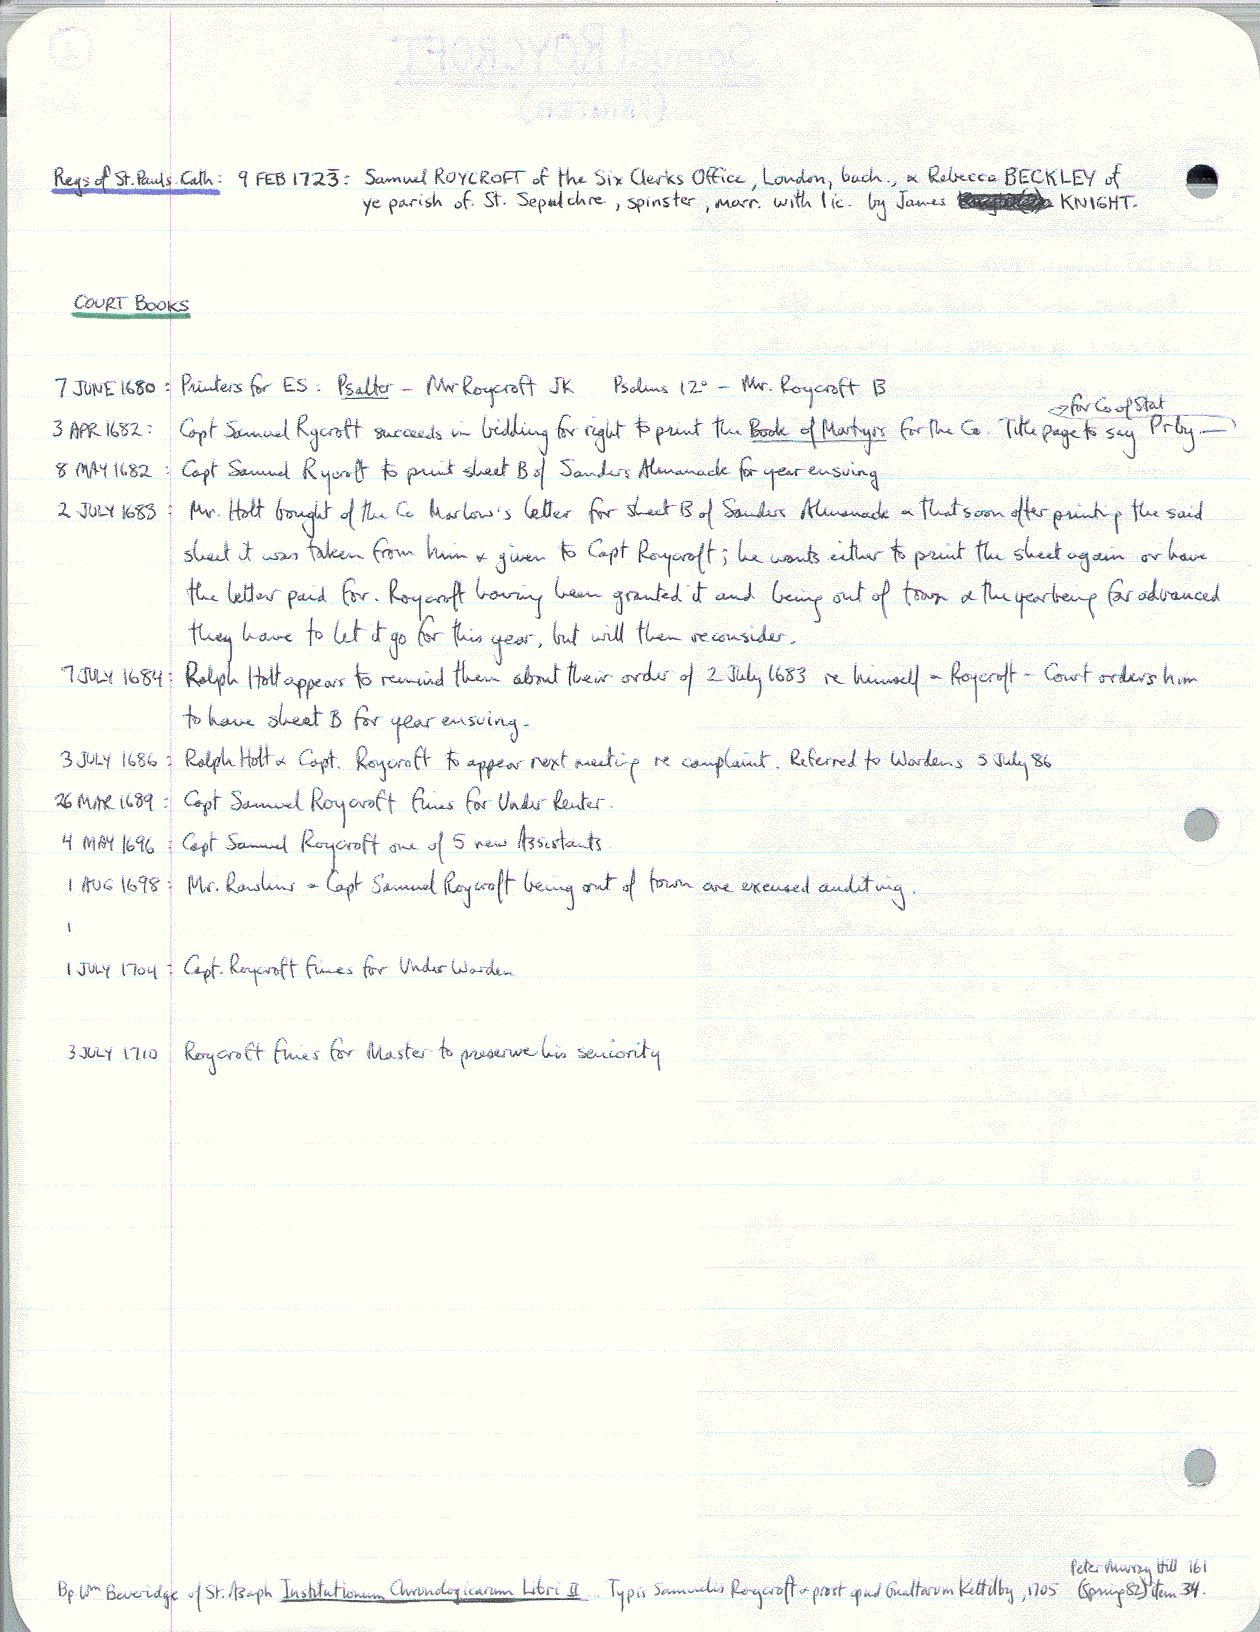 Regs of St. Pauls Cath: 9 FEB 1723: Samuel ROYCROFT of the Six Clerks Office, London, bach., & Rebecca BECKLEY of
ye parish of St. Sepulchre, spinster, marr. with lic. by James KNIGHT.
COURT BOOKS
7 JUNE 1680: Printers for ES: Psalter – Mr Roycroft JK Psalms 12° – Mr. Roycroft B
for Co of Stat
3 APR 1682: Capt Samuel Rycroft succeeds in bidding for right to print the Book of Martyrs for the Co. Title page to say Pr by —
8 MAY 1682 : Capt Samuel Rycroft to print sheet B of Sanders Almanack for year ensuing
2 JULY 1683 : Mr. Holt bought of the Co Marlow's letter for sheet B of Sanders Almanack & that soon after printing the said
sheet it was taken from him & given to Capt Roycroft; he wants either to print the sheet again or have
the letter paid for. Roycroft having been granted it and being out of town & the year being far advanced
they have to let it go for this year, but will then reconsider.
7 JULY 1684: Ralph Holt appears to remind them about their order of 2 July 1683 re himself & Roycroft – Court orders him
to have sheet B for year ensuing.
3 JULY 1686 : Ralph Holt & Capt. Roycroft to appear next meeting re complaint. Referred to Wardens 5 July 86
26 MAR 1689 : Capt Samuel Roycroft fines for Under Renter.
4 MAY 1696 : Capt Samuel Roycroft one of 5 new Assistants
1 AUG 1698 : Mr. Rawlins & Capt Samuel Roycroft being out of town are excused auditing.
1
1 JULY 1704 : Capt. Roycroft fines for Under Warden
3 JULY 1710 Roycroft fines for Master to preserve his seniority
Peter Murray Hill 161
Bp Wm Beveridge of St. Asaph Institutionum Chronologicarum Libri II ... Typis Samuelis Roycroft & prost apud Gualterum Kettilby, 1705 (Spring 82) item 34.